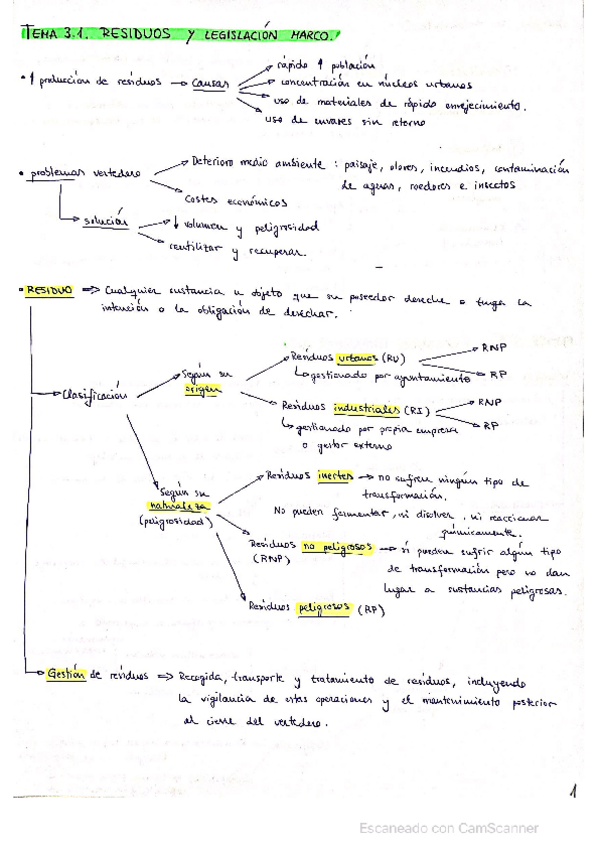 TEMA 3.1. RESIDUOS Y LEGISLACIÓN MARCO.
• ↑ producción de residuos → causas
rápido ↑ población
concentración en núcleos urbanos
uso de materiales de rápido envejecimiento.
uso de envases sin retorno
• problemas vertedero
Deterioro medio ambiente : paisaje, olores, incendios, contaminación
de aguas, roedores e insectos
Costes económicos
solución
↓ volumen y peligrosidad
reutilizar y recuperar.
• RESIDUO ⇒ Cualquier sustancia u objeto que su poseedor deseche o tenga la
intención o la obligación de desechar.
Clasificación
Según su
origen
Residuos urbanos (RU)
RNP
RP
gestionado por ayuntamiento
Residuos industriales (RI)
RNP
RP
gestionado por propia empresa
o gestor externo
Según su
naturaleza
(peligrosidad)
Residuos inertes → no sufren ningún tipo de
transformación.
No pueden fermentar, ni disolver, ni reaccionar
químicamente.
Residuos no peligrosos → sí pueden sufrir algún tipo
(RNP)
de transformación pero no dan
lugar a sustancias peligrosas.
Residuos peligrosos (RP)
Gestión de residuos ⇒ Recogida, transporte y tratamiento de residuos, incluyendo
la vigilancia de estas operaciones y el mantenimiento posterior
al cierre del vertedero.
1
Escaneado con CamScanner